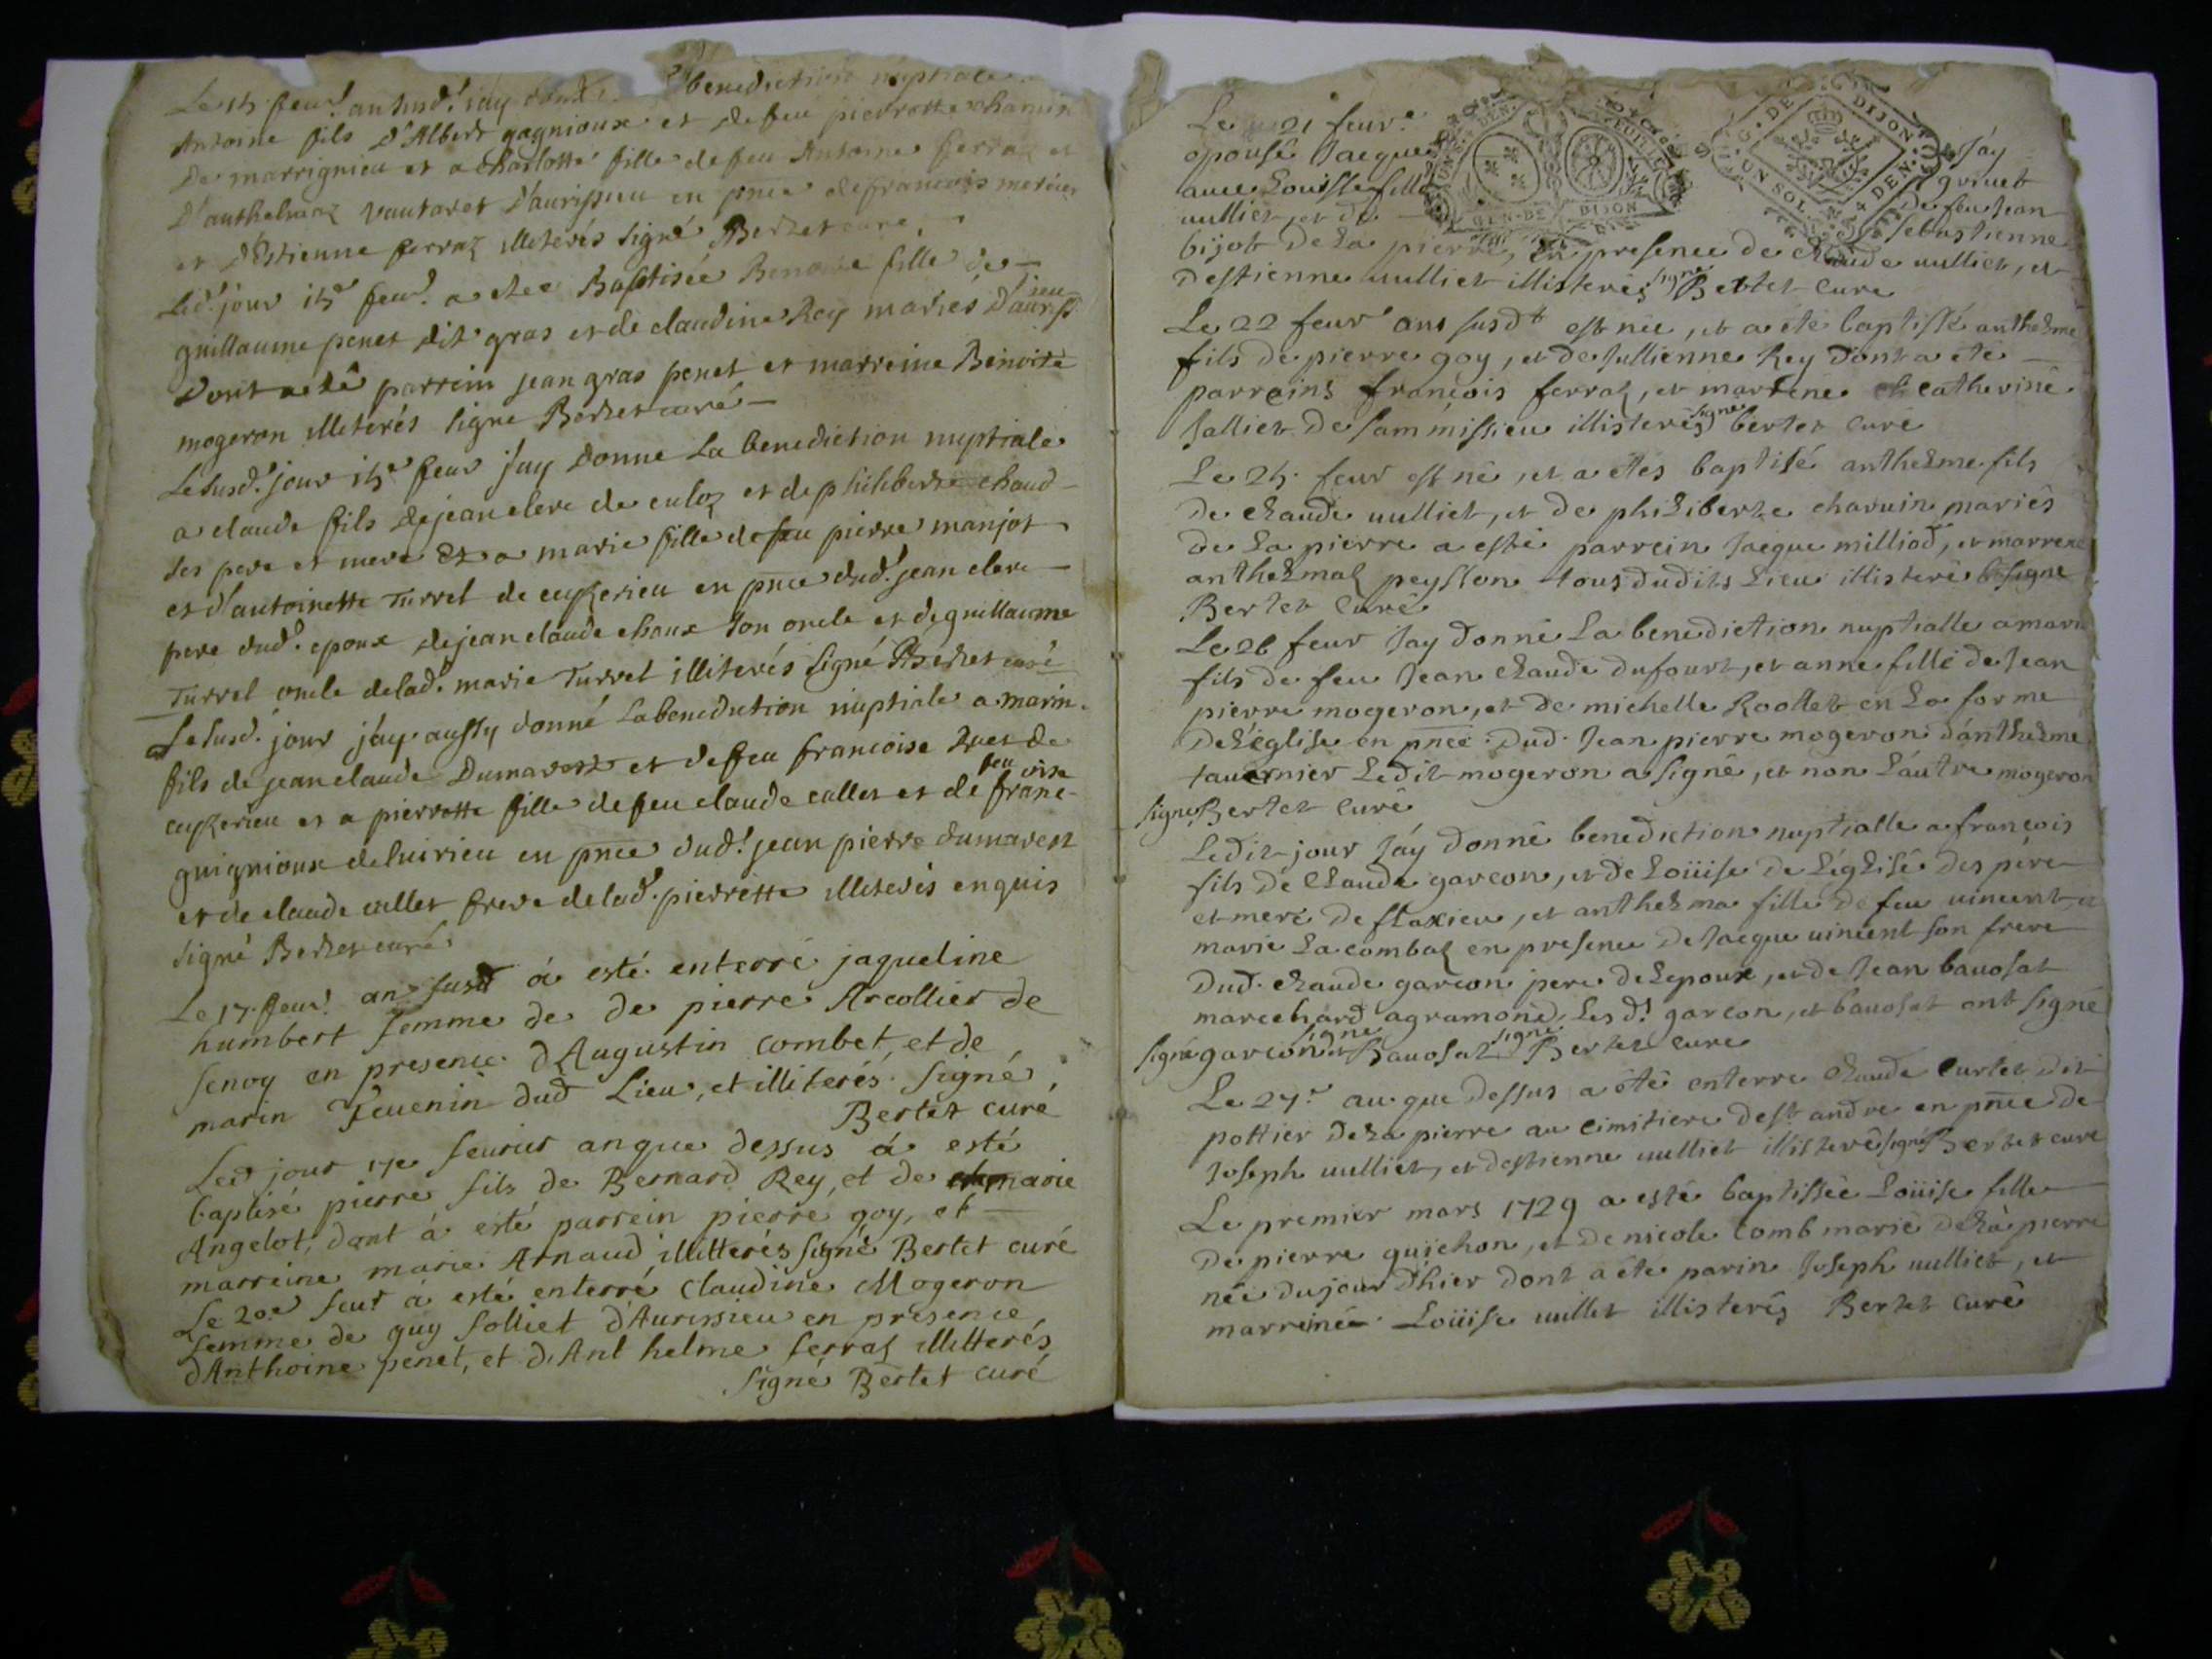 Le 15 feur. an susd. jay donné benediction nuptiale
Antoine fils d'Albert gagnioux et de feu pierrotte chanin
de marrignieu et a Charlotte fille de feu Antoine ferraz et
d'anthelmaz vautaret d'aurissieu en pnce de francois
et d'Estienne ferraz illiterés signé Bertet curé
Led. jour 15e feur. a étée Baptisée Benoite fille de
guillaume penet dit gras et de claudine Rey mariés d'auriss
ieu
dont a êté parrein jean gras penet et marreine Benoite
mogeron illiterés signe Bertet curé
Le susd. jour 15e feur jay donne La benediction nuptiale
a claude fils de jean clerc de culoz et de philiberte chaud
ses pere et mere et a marie fille de feu pierre manjot
et d'antoinette Turrel de cuzerieu en pnce dud. jean clerc
pere dud. epoux de jean claude choux son oncle et de guillaume
Turrel oncle de lad. marie Turrel illiterés signé Bertet curé
Le susd. jour jáy aussy donné la benediction nuptiale a marin
fils de jean claude Dumarest et de feu francoise de
cuzerieu et a pierrotte fille de feu claude callet et de feu franc
oise
guignioux de luirieu en pnce dud. jean pierre dumarest
et de claude callet frere de lad. pierrette illiterés enquis
signé Bertet curé
Le 17. feur. an susd á esté enterré jaqueline
humbert femme de de pierre Arcollier de
senoy en presence d'Augustin combet, et de
marin Feuenin dud Lieu, et illiterés. Signé
Bertet curé
Led jour 17e feurier an que dessus á esté
baptisé pierre fils de Bernard Rey, et de marie
Angelot, dont á esté parrein pierre goy, et
marreine marie Arnaud illitterés signé Bertet curé
Le 20e feur á esté enterré Claudine Mogeron
femme de guy solliet d'Aurissieu en presence
d'Anthoine penet, et d'Anthelme ferraz illitterés
Signé Bertet curé
Le 21 feur. Jáy
epousé Jacque grinet
auec Louisse fille de feu Jean
uulliet et de Sebastienne
bijot de La pierre, en presence de Claude uulliet, et
destienne uulliet illisterés signe Bertet Cure
Le 22 feur ans susdt est née, et a été baptissé anthelme
fils de pierre goy, et de Jullienne Rey dont a eté
parreins françois ferraz, et marréne catherine
Jalliet de sammissieu illisterés signe bertet curé
Le 25. feur est né, et a étes baptisé anthelme fils
de Claude uulliet, et de philiberte charuin mariés
de La pierre a esté parrein Jacque milliod, et marrene
anthelmaz peysson tous dudits Lieu illisteré signe
Bertet Curé
Le 26 feur Jay donné La benediction nuptialle a marin
fils de feu Jean Claude dufourt, et anne fille de Jean
pierre mogeron, et de michelle Roollet en La forme
de L'église en pnce dud. Jean pierre mogeron d'anthelme
tauernier Ledit mogeron a signé, et non L'áutre mogeron
signe Bertet Curé
Ledit jour Jáy donné benediction nuptialle a françois
fils de Claude garcon, et de Loüise de L'église des pére
et mere de flaxieu, et anthelma fille de feu uincent, et
marie La combaz en presence de Jacque uincent son frere
dud. Claude garcon pere de Lepoux, et de Jean bauosat
marchard agramond, Lesd. garcon, et bauosat ont signé
signé garcon signe Bauosat signé Bertet cure
Le 27e au que dessus a été enterre Claude Curtet dit
pottier de La pierre au cimitiere de st andre en pnce de
Joseph uulliet, et destienne uulliet illisteré signé Bertet cure
Le premier mars 1729 a esté baptissée Loüise fille
de pierre guichon, et de nicole Comb marié de La pierre
née du jour d'hier dont a été parin Joseph uulliet, et
marreiné Loüise uullet illisterés Bertet Curé
G. DE DIJON
UN SOL 4 DEN.
GEN. DE DIJON